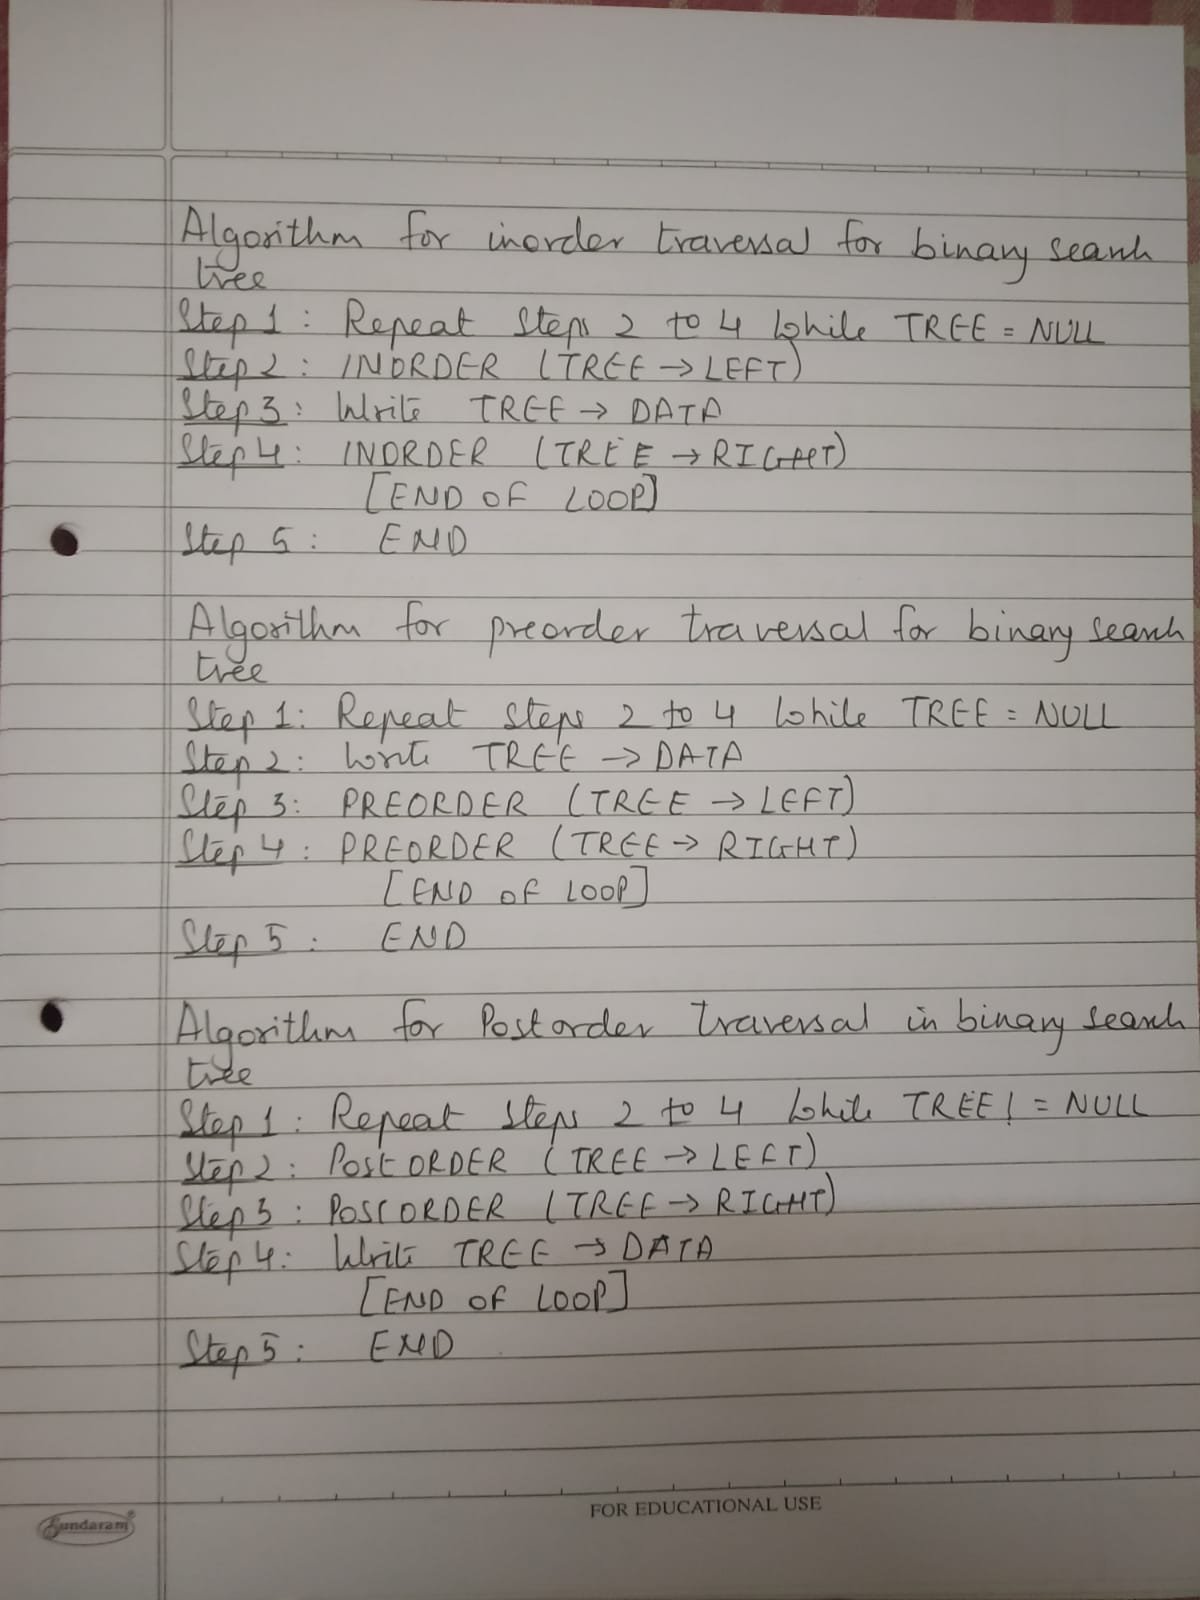 Algorithm for inorder traversal for binary search
tree
Step 1 : Repeat Steps 2 to 4 while TREE = NULL
Step 2 : INORDER (TREE → LEFT)
Step 3 : Write TREE → DATA
Step 4 : INORDER (TREE → RIGHT)
[END OF LOOP]
Step 5 : END
Algorithm for preorder traversal for binary search
tree
Step 1: Repeat steps 2 to 4 while TREE = NULL
Step 2: Write TREE → DATA
Step 3: PREORDER (TREE → LEFT)
Step 4 : PREORDER (TREE → RIGHT)
[END OF LOOP]
Step 5 : END
Algorithm for Postorder traversal in binary search
tree
Step 1 : Repeat steps 2 to 4 while TREE ! = NULL
Step 2 : POSTORDER (TREE → LEFT)
Step 3 : POSTORDER (TREE → RIGHT)
Step 4: Write TREE → DATA
[END OF LOOP]
Step 5 : END
FOR EDUCATIONAL USE
Sundaram®